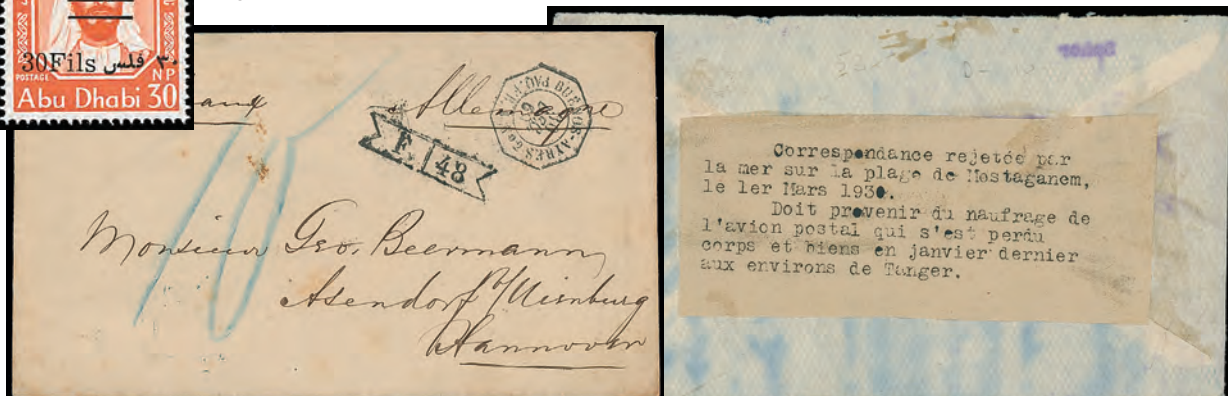 30Fils فلس ٣٠
POSTAGE NP
Abu Dhabi 30
Allemagne
BUENOS-AYRES PAQ.FR.
F. 48
Monsieur Geo. Beermann
Asendorf b/Nienburg
Hannover
Correspondance rejetée par
la mer sur la plage de Mostaganem,
le 1er Mars 1930.
Doit provenir du naufrage de
l'avion postal qui s'est perdu
corps et biens en janvier dernier
aux environs de Tanger.